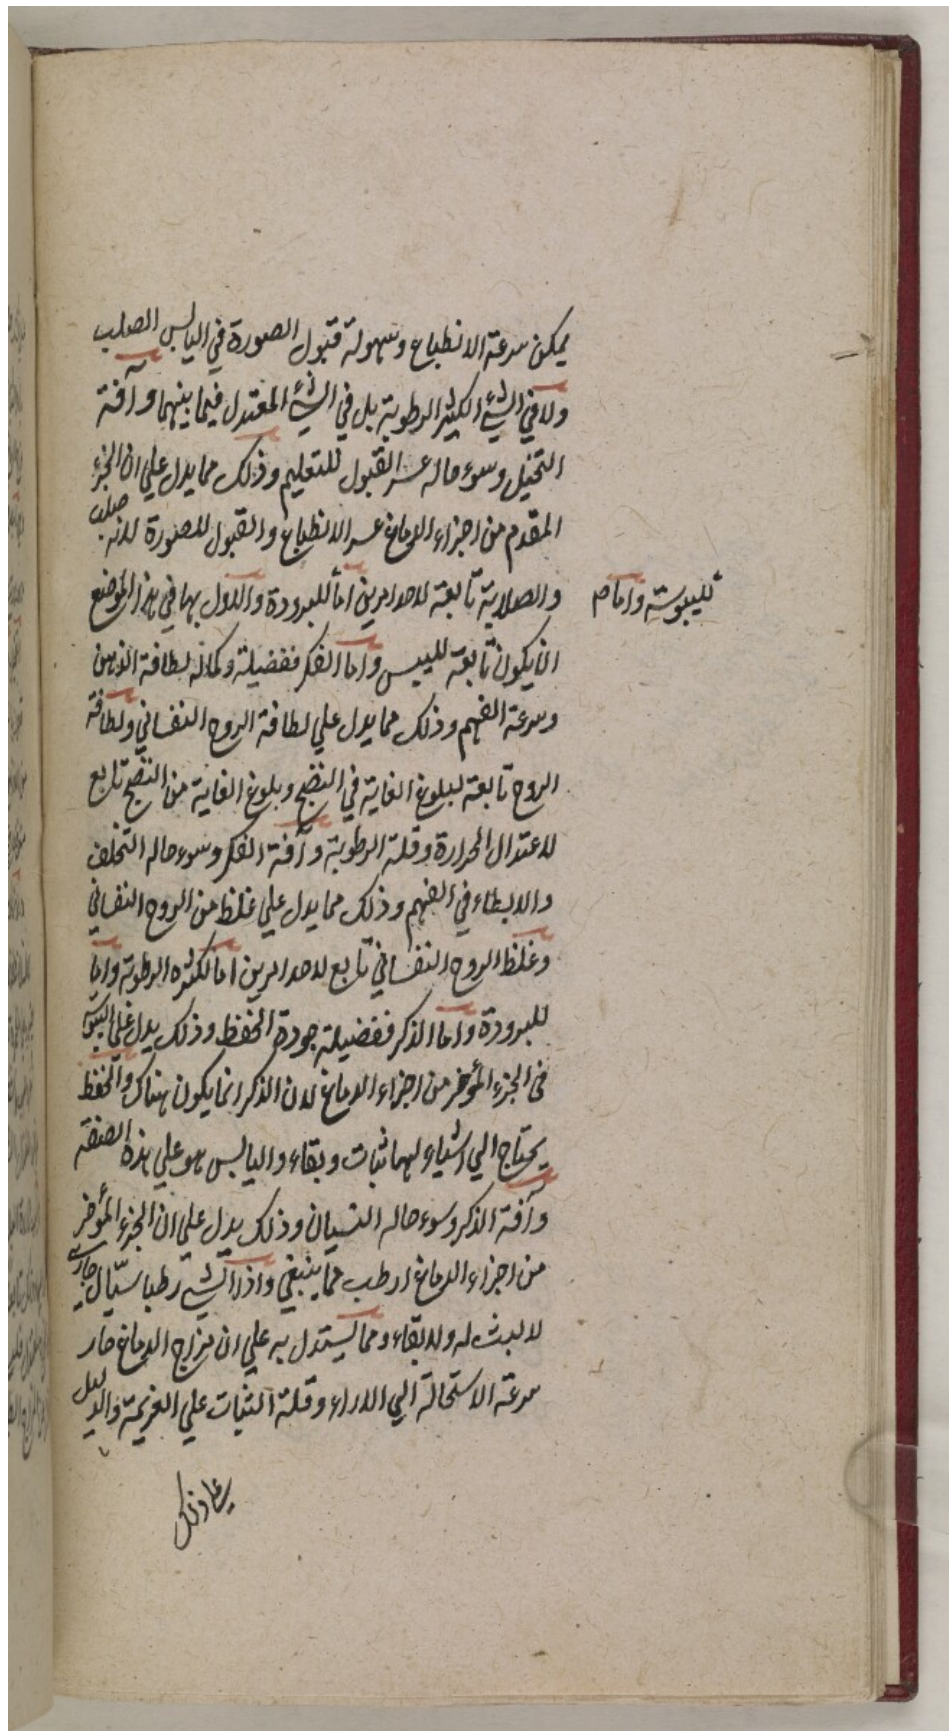 يمكن سرعة الانطباع وسهولة قبول الصورة في اليابس الصلب
ولا في الشيء الكثير الرطوبة بل في الشيء المعتدل فيما بينهما وآفة
التخيل وسوء حاله عسر القبول للتعليم وذلك مما يدل علي ان الجزء
المقدم من اجزاء الدماغ عسر الانطباع والقبول للصورة لانه صلب
والصلابة تابعة لاحد امرين اما للبرودة والاولى بها في هذا الموضع
لليبوسة واما
ان يكون تابعة لليبس واما الفكر ففضيلته وكماله لطافة الذهن
وسرعة الفهم وذلك مما يدل علي لطافة الروح النفساني ولطافة
الروح تابعة لبلوغ الغاية في النضج وبلوغ الغاية من النضج تابع
لاعتدال الحرارة وقلة الرطوبة وآفة الفكر وسوء حاله التخلف
والابطاء في الفهم وذلك مما يدل علي غلظ من الروح النفساني
وغلظ الروح النفساني تابع لاحد امرين اما لكثرة الرطوبة واما
للبرودة واما الذكر ففضيلته جودة الحفظ وذلك يدل علي اليبوسة
في الجزء المؤخر من اجزاء الدماغ لان الذكر انما يكون هناك والحفظ
يحتاج الي اشياء لها ثبات وبقاء واليابس هو علي هذه الصفة
وآفة الذكر وسوء حاله النسيان وذلك يدل علي ان الجزء المؤخر
من اجزاء الدماغ ارطب مما ينبغي واذا الشيء رطبا سيّال جاري
لا لبث له ولا بقاء ومما يستدل به علي ان مزاج الدماغ حار
سرعة الاستحالة الي الاراء وقلة الثبات علي العزيمة والدليل
علي ذلك